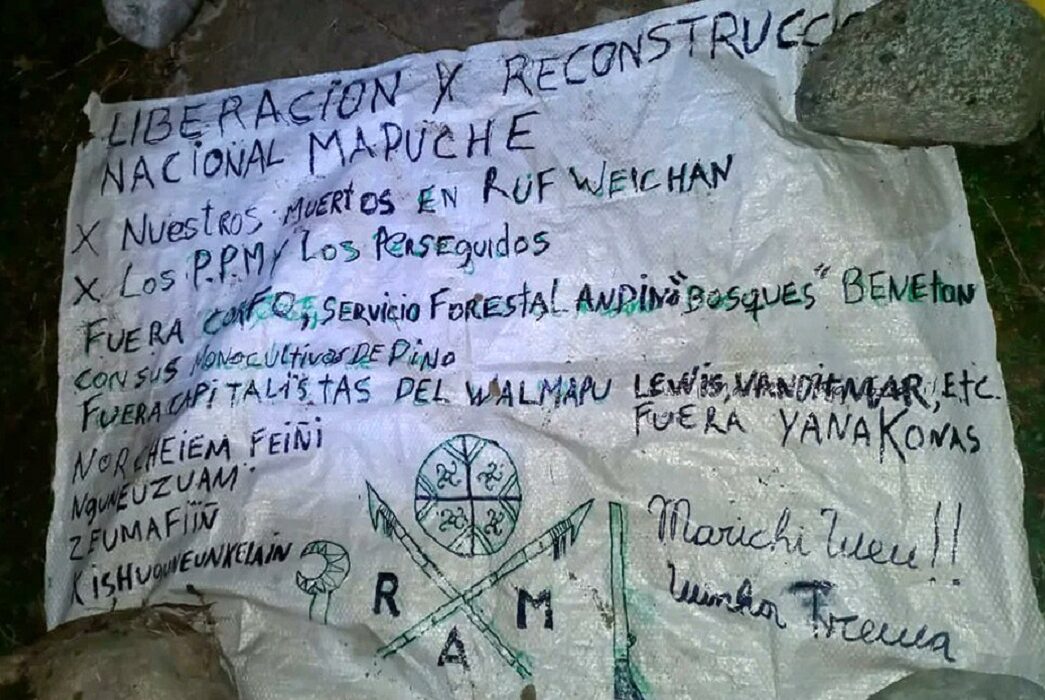 LIBERACION X RECONSTRUCC
NACIONAL MAPUCHE
X Nuestros MUERTOS EN RUF WEICHAN
X Los P.P.M Y Los PERSEGUIDOS
FUERA SERVICIO FORESTAL ANDINO "BOSQUES" BENETON
CON SUS MONOCULTIVOS DE PINO
FUERA CAPITALISTAS DEL WALMAPU LEWIS, VANDITMAR, ETC.
FUERA YANAKONAS
NORCHEIEM FEIÑI
NGUNEUZUAM
ZEUMAFIIÑ
R A M
Marichi Weu!!
Winka Trewa